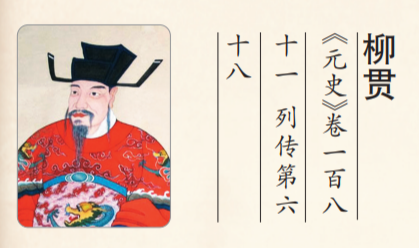 柳贯
《元史》卷一百八
十一 列传第六
十八